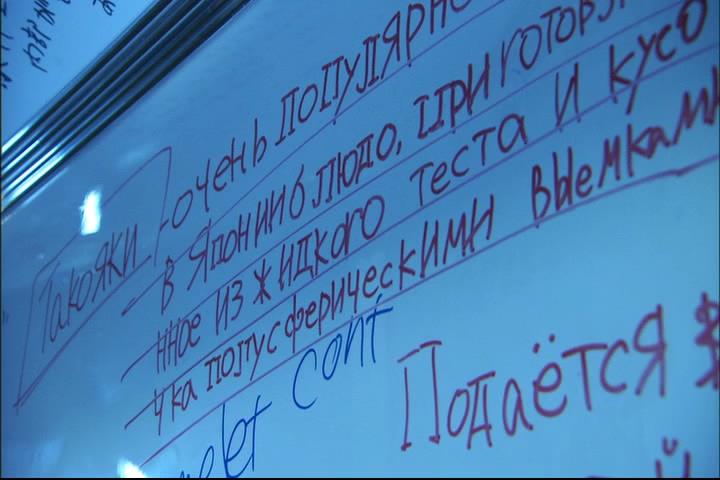 Такояки - очень популярно
в Японии блюдо, приготовл
нное из жидкого теста и кусо
чка полусферическими выемками
cont
Подаётся